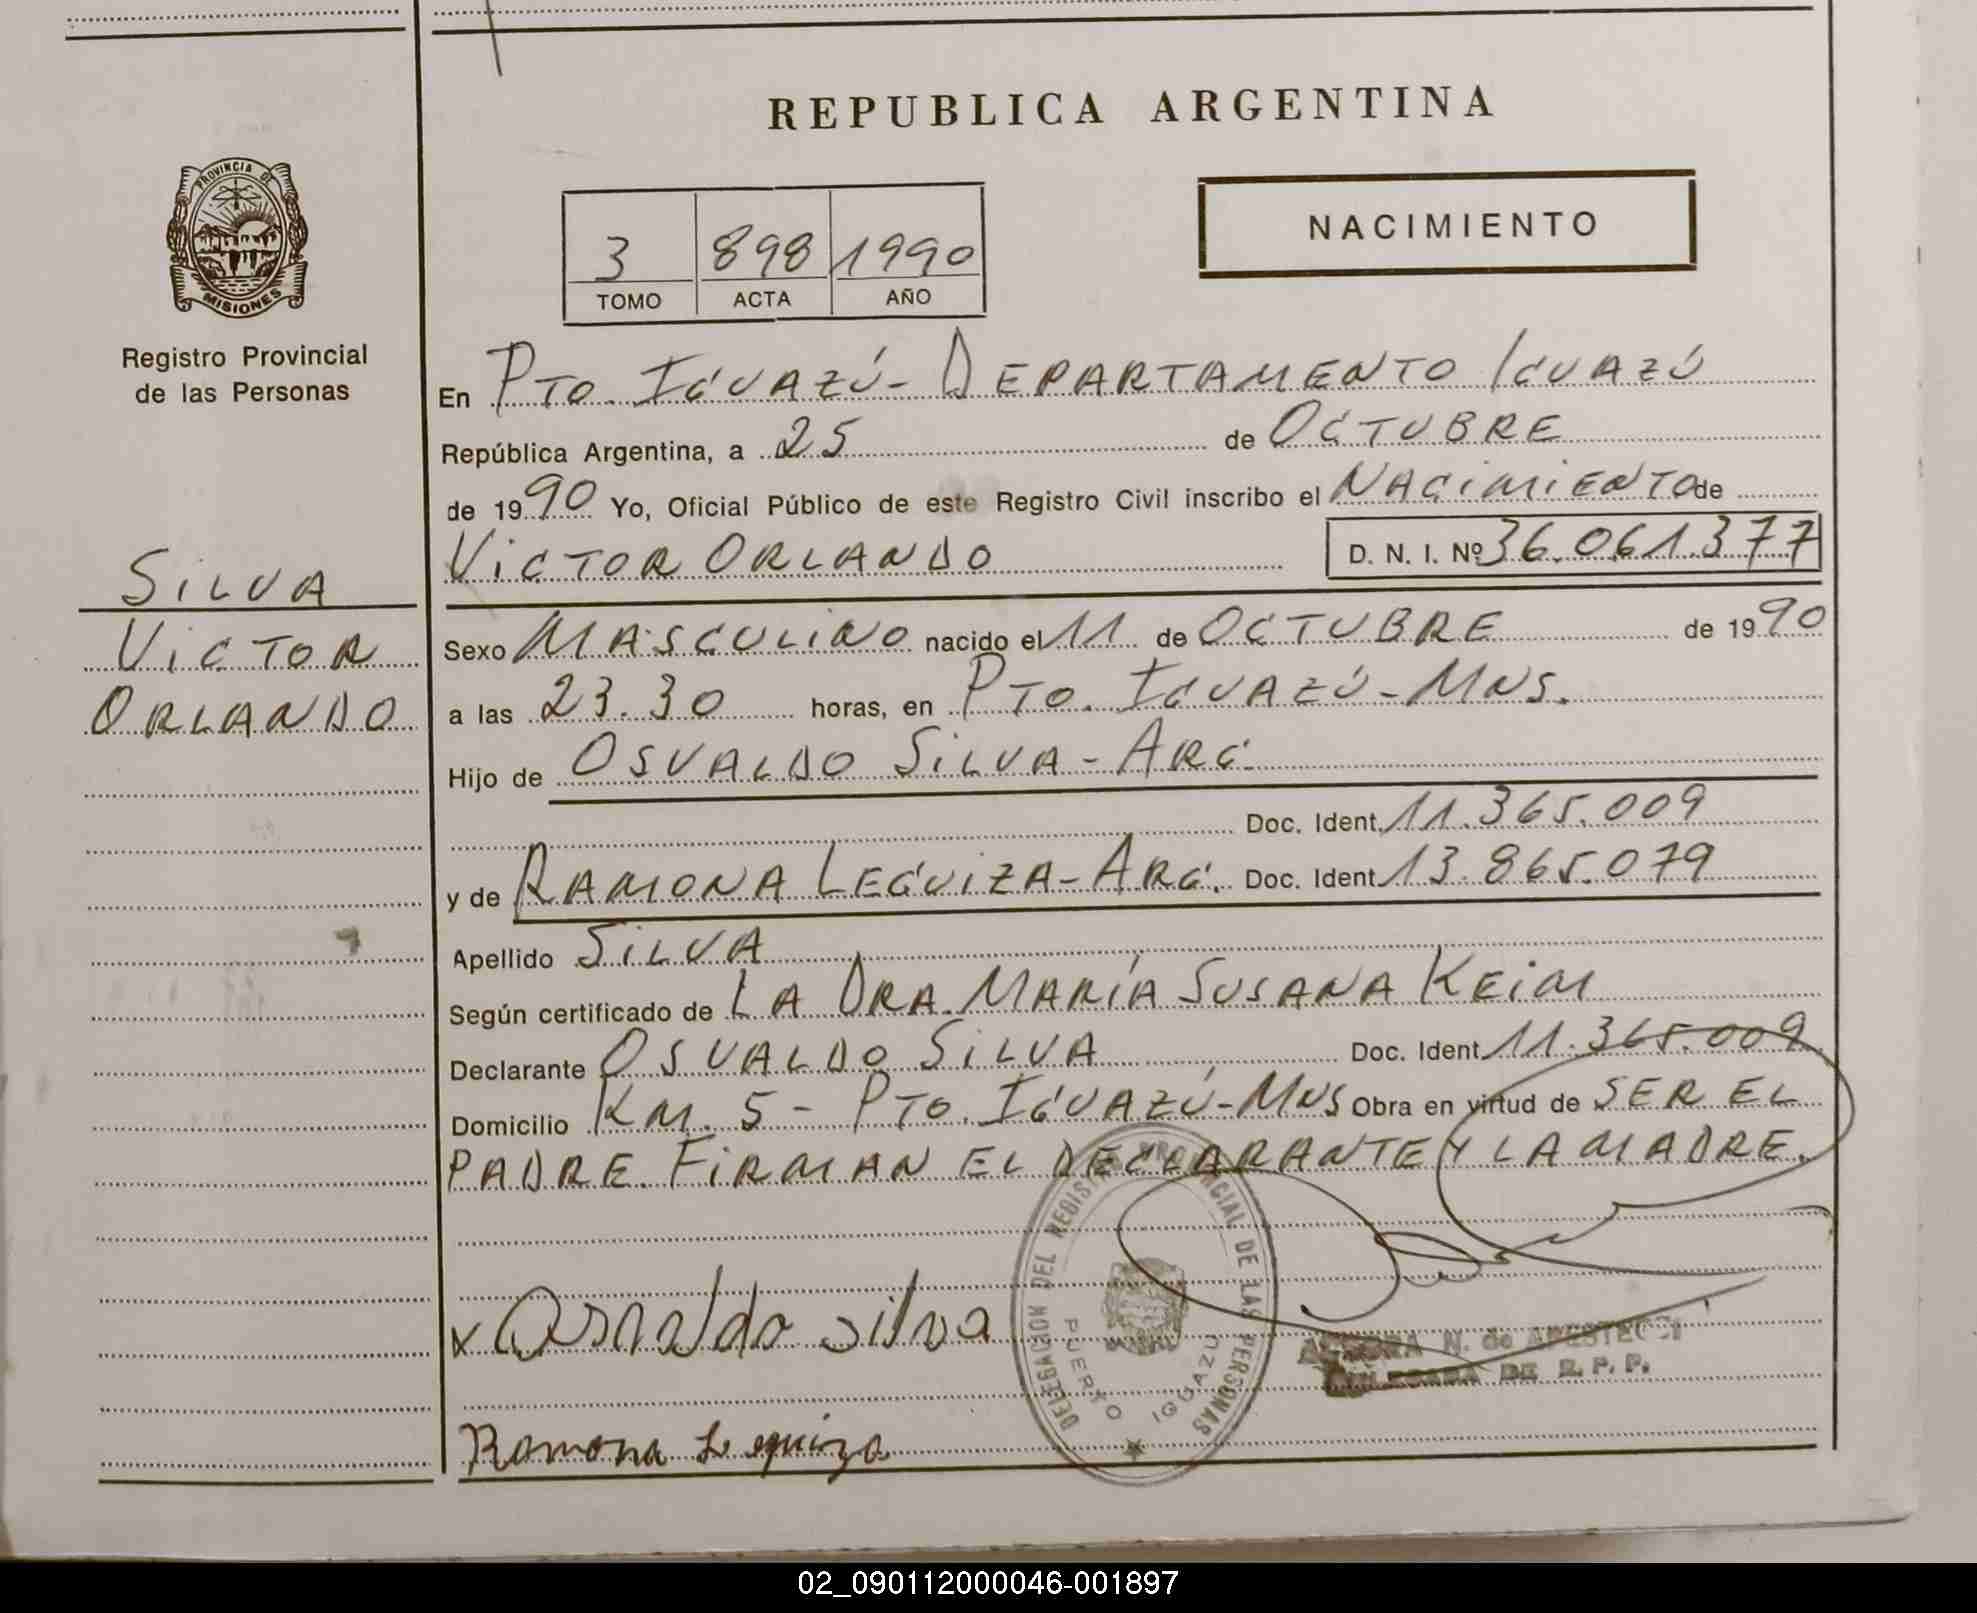 REPUBLICA ARGENTINA
NACIMIENTO
3 898 1990
TOMO ACTA AÑO
PROVINCIA DE
MISIONES
Registro Provincial
de las Personas
SILVA
VICTOR
ORLANDO
En PTO. IGUAZÚ - DEPARTAMENTO IGUAZÚ
República Argentina, a 25 de OCTUBRE
de 1990 Yo, Oficial Público de este Registro Civil inscribo el NACIMIENTO de
VICTOR ORLANDO D. N. I. Nº 36.061.377
Sexo MASCULINO nacido el 11 de OCTUBRE de 1990
a las 23.30 horas, en PTO. IGUAZÚ - MNS.
Hijo de OSVALDO SILVA - ARG.
Doc. Ident. 11.365.009
y de RAMONA LEGUIZA - ARG. Doc. Ident. 13.865.079
Apellido SILVA
Según certificado de LA DRA. MARÍA SUSANA KEIM
Declarante OSVALDO SILVA Doc. Ident. 11.365.009
Domicilio KM. 5 - PTO. IGUAZÚ - MNS Obra en virtud de SER EL
PADRE. FIRMAN EL DECLARANTE Y LA MADRE.
x Osvaldo Silva
DELEGACION DEL REGISTRO PROVINCIAL DE LAS PERSONAS
PUERTO IGUAZU
N. de
DE R. P. P.
Ramona Leguiza
02_090112000046-001897